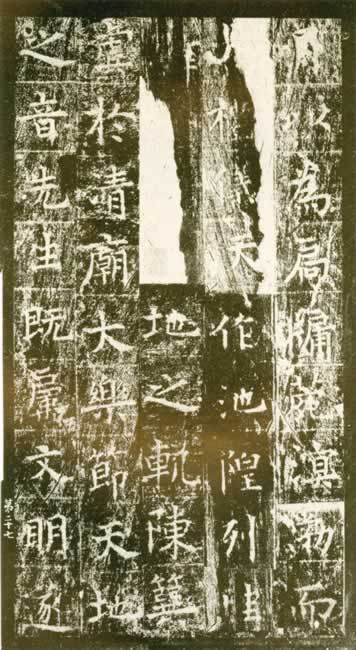 以為扃牖溟渤而
天作池隍列
地之軌陳簠
於清廟大樂節天地
之音先生既屬文明遂
第二十七